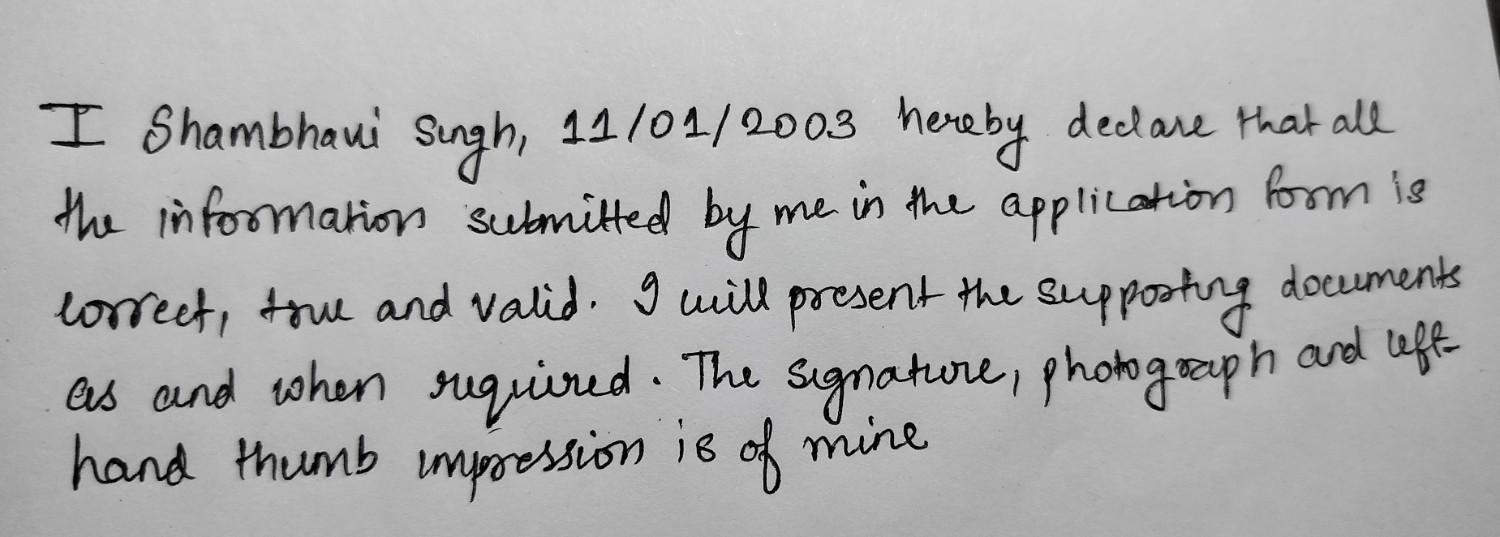 I Shambhavi Singh, 11/01/2003 hereby declare that all
the information submitted by me in the application form is
correct, true and valid. I will present the supporting documents
as and when required. The signature, photograph and left-
hand thumb impression is of mine